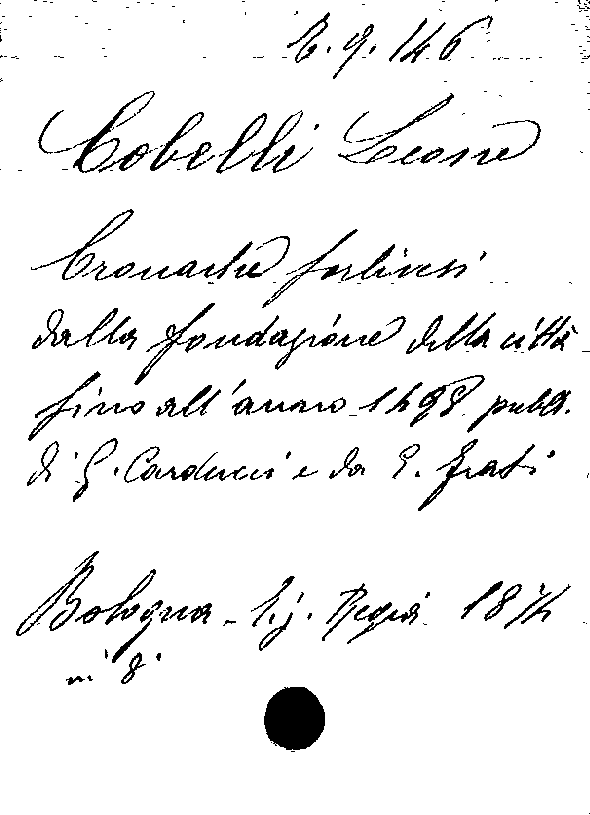 B. 9. 146
Cobelli Leone
Cronache forlivesi
dalla fondazione della città
fino all'anno 1498 pubbl.
di G. Carducci e da E. Frati
Bologna - Tip. Regia 1874
in 8°